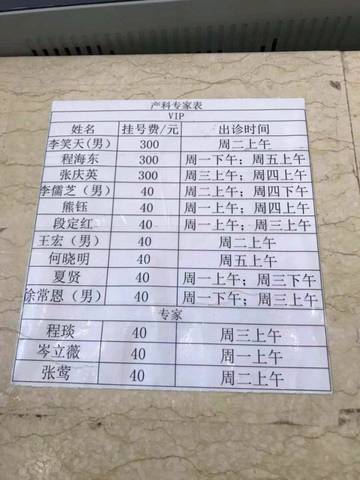 产科专家表
VIP
姓名 挂号费/元 出诊时间
李笑天(男) 300 周二上午
程海东 300 周一下午；周五上午
张庆英 300 周三上午；周四上午
李儒芝（男） 40 周二上午；周四下午
熊钰 40 周一上午；周四上午
段定红 40 周一上午；周三上午
王宏（男） 40 周二上午
何晓明 40 周五上午
夏贤 40 周一上午；周三下午
徐常恩（男） 40 周一下午；周三上午
专家
程琰 40 周三上午
岑立薇 40 周一上午
张莺 40 周二上午